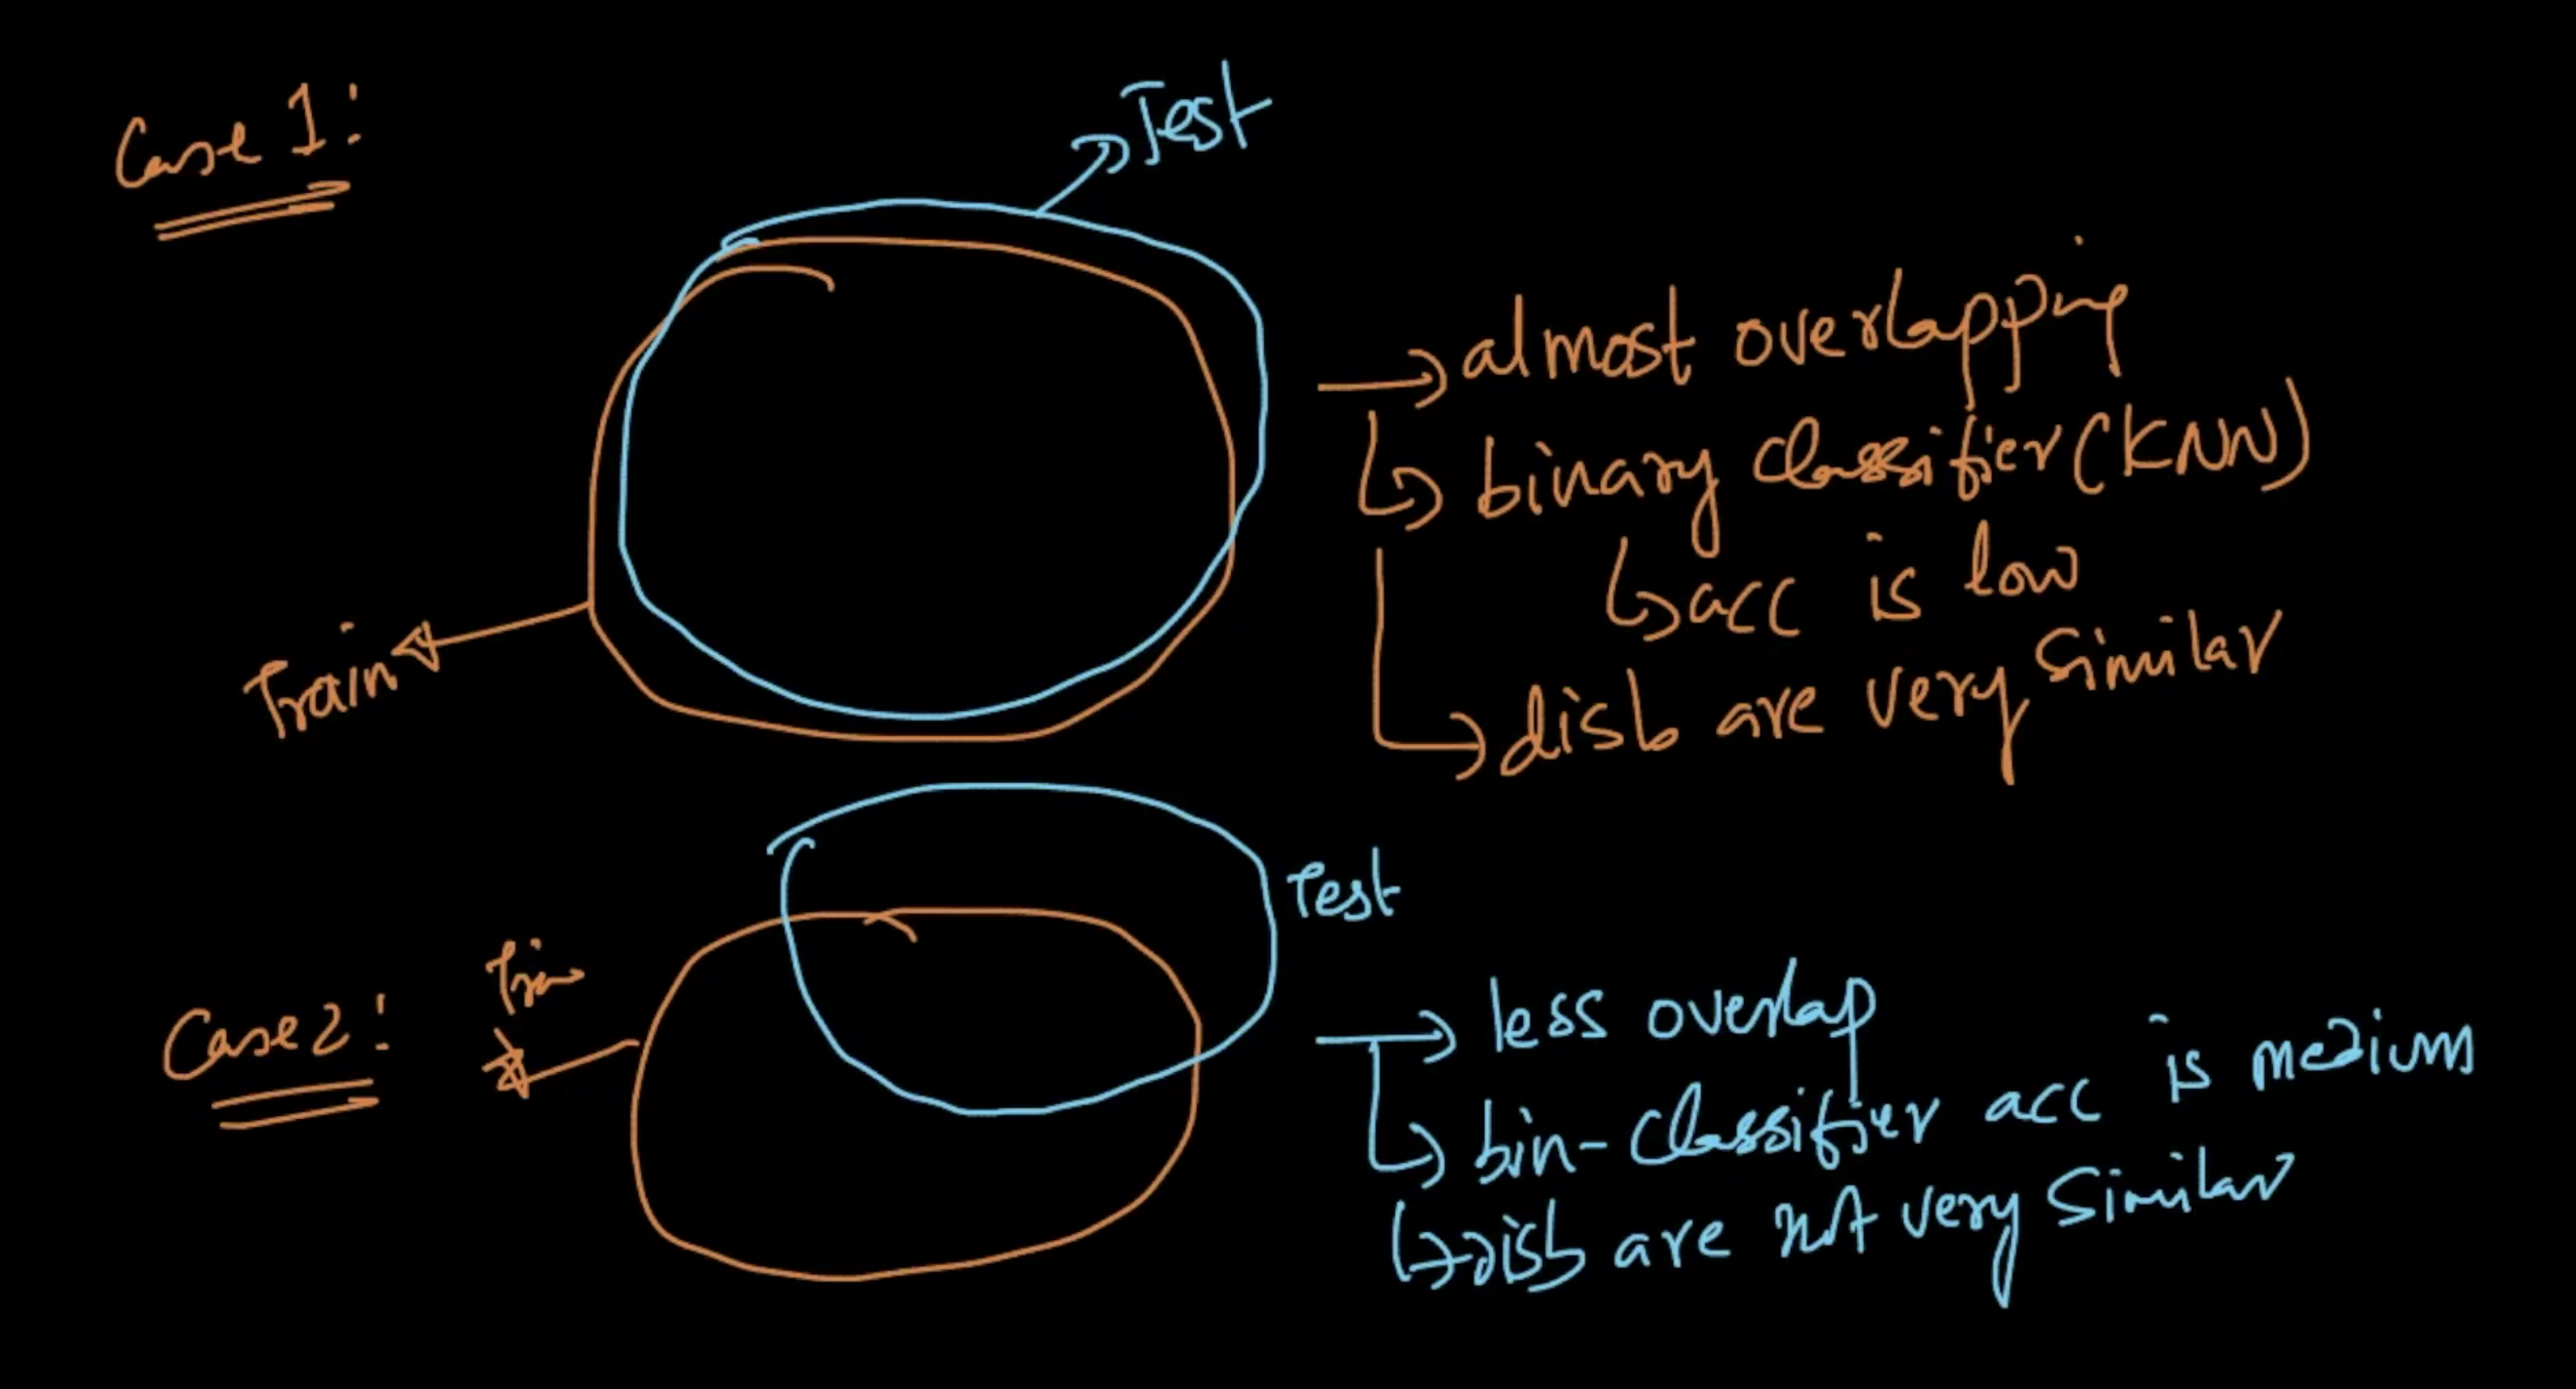 Case 1:
Test
almost overlapping
binary classifier (KNN)
acc is low
Train
disb are very similar
Test
Case 2:
less overlap
bin-classifier acc is medium
disb are not very similar